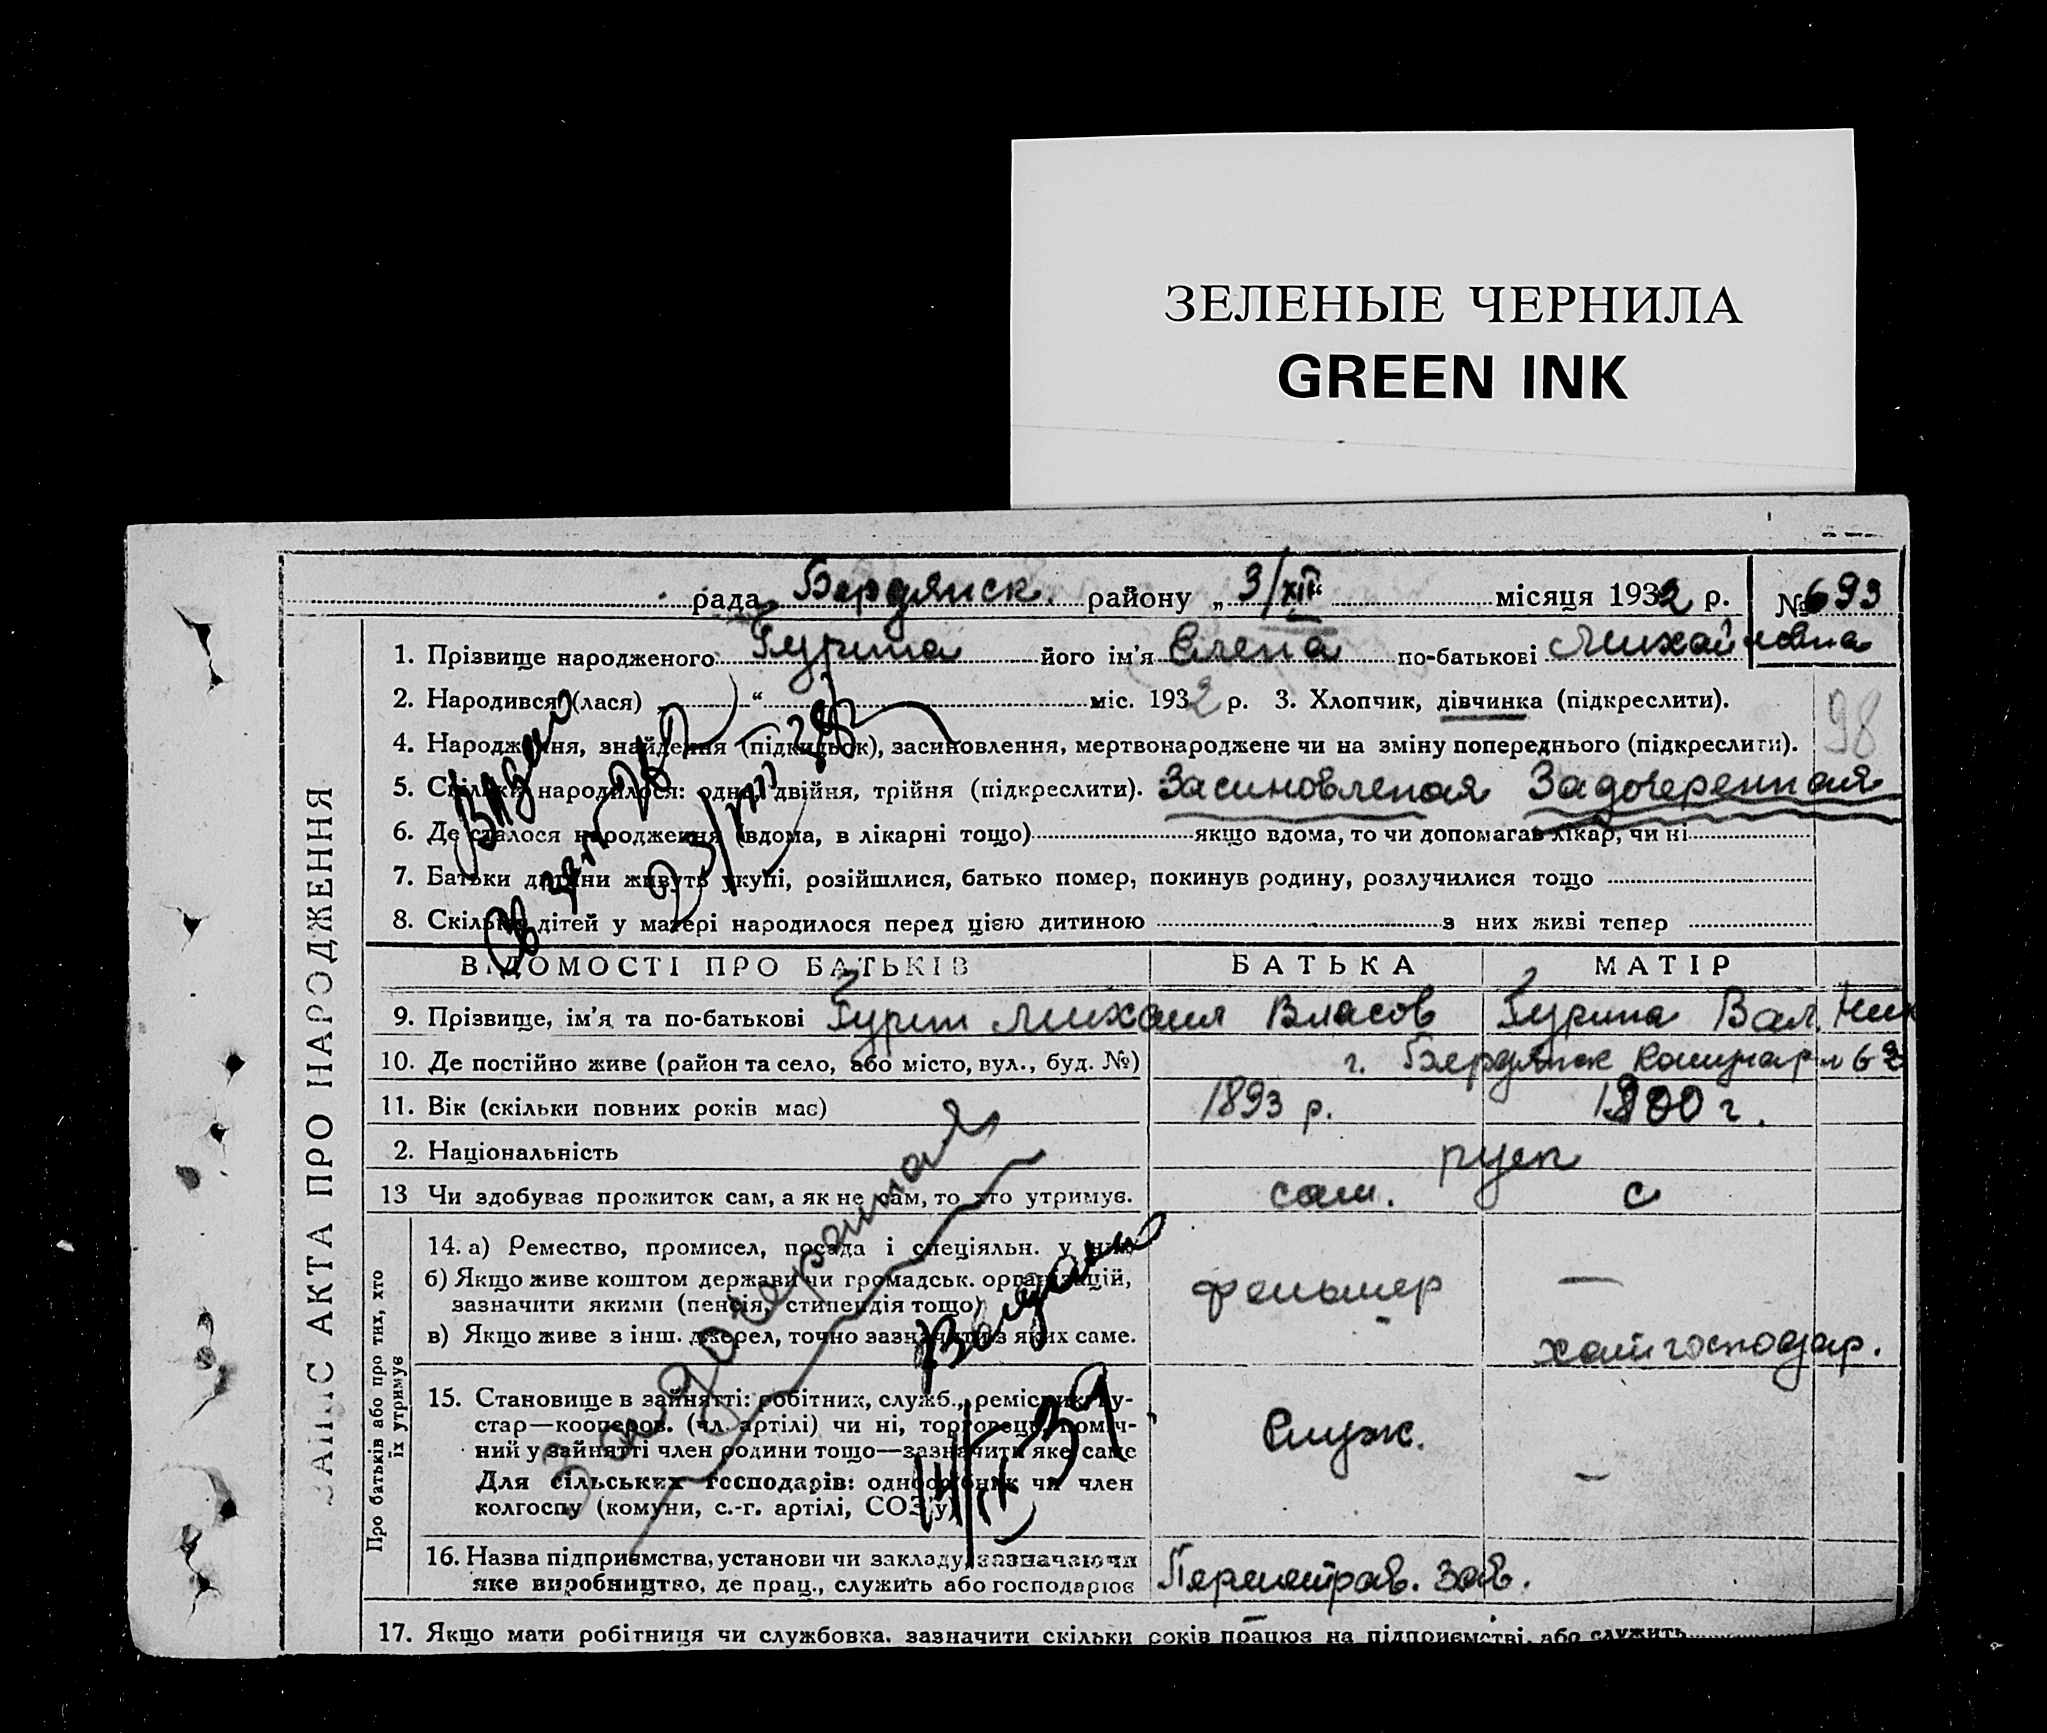 ЗЕЛЕНЫЕ ЧЕРНИЛА
GREEN INK
рада Бердянск. району „ 3/XII “ місяця 1932 р. № 693
1. Прізвище народженого Гурина його ім'я Елена по-батькові Михайловна
2. Народився (лася) “ міс. 1932 р. 3. Хлопчик, дівчинка (підкреслити).
98
4. Народження, знайдення (підкидьок), засиновлення, мертвонароджене чи на зміну попереднього (підкреслити).
5. Скільки народилося: одна, двійня, трійня (підкреслити). Засиновленая Задочеренная
6. Де сталося народження (вдома, в лікарні тощо) якщо вдома, то чи допомагав лікар, чи ні
7. Батьки дитини живуть укупі, розійшлися, батько помер, покинув родину, розлучилися тощо
8. Скільки дітей у матері народилося перед цією дитиною з них живі тепер
ЗАПИС АКТА ПРО НАРОДЖЕННЯ
ВІДОМОСТІ ПРО БАТЬКІВ БАТЬКА МАТІР
9. Прізвище, ім'я та по-батькові Гурин Михаил Власов Гурина Вал. Ник
10. Де постійно живе (район та село, або місто, вул., буд. №) г. Бердянск
11. Вік (скільки повних років має) 1893 р. 1900 г.
2. Національність руск
13 Чи здобуває прожиток сам, а як не сам, то хто утримує. сам. с
Про батьків або про тих, хто їх утримує
14. а) Ремество, промисел, посада і спеціяльн. у ній
б) Якщо живе коштом держави чи громадськ. організацій,
зазначити якими (пенсія, стипендія тощо) фельшер —
в) Якщо живе з інш. джерел, точно зазначити з яких саме. хатн господар.
Задочеранная
15. Становище в зайнятті: робітник, служб., ремісник, ку-
стар—коопоров. (чл. артілі) чи ні, торговець, поміч-
ний у зайнятті член родини тощо—зазначити яке саме Служ. —
Для сільських господарів: одноосібник чи член
колгоспу (комуни, с.-г. артілі, СОЗ'у)
16. Назва підприємства, установи чи закладу, зазначаючи
яке виробництво, де прац., служить або господарює зав.
17. Якщо мати робітниця чи службовка, зазначити скільки років працює на підприємстві, або служить